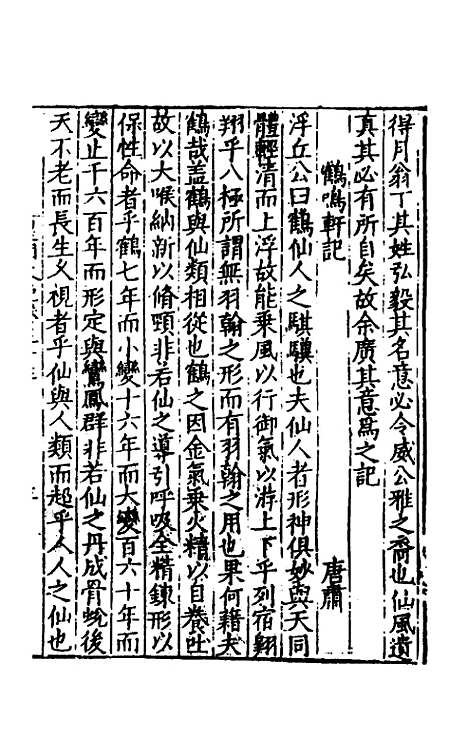 得月翁丁其姓弘毅其名意必令威公雅之裔也仙風遺
真其必有所自矣故余廣其意為之記
鶴鳴軒記 唐肅
浮丘公曰鶴仙人之騏驥也夫仙人者形神俱妙與天同
體輕清而上浮故能乗風以行御氣以游上下乎列宿翺
翔乎八極所謂無羽翰之形而有羽翰之用也果何藉夫
鶴哉盖鶴與仙類相從也鶴之因金氣乗火精以自養吐
故以大喉納新以脩頸非若仙之導引呼吸全精鍊形以
保性命者乎鶴七年而小變十六年而大變百六十年而
變止千六百年而形定與鸞鳳群非若仙之丹成骨蛻後
天不老而長生久視者乎仙與人類而超乎人人之仙也